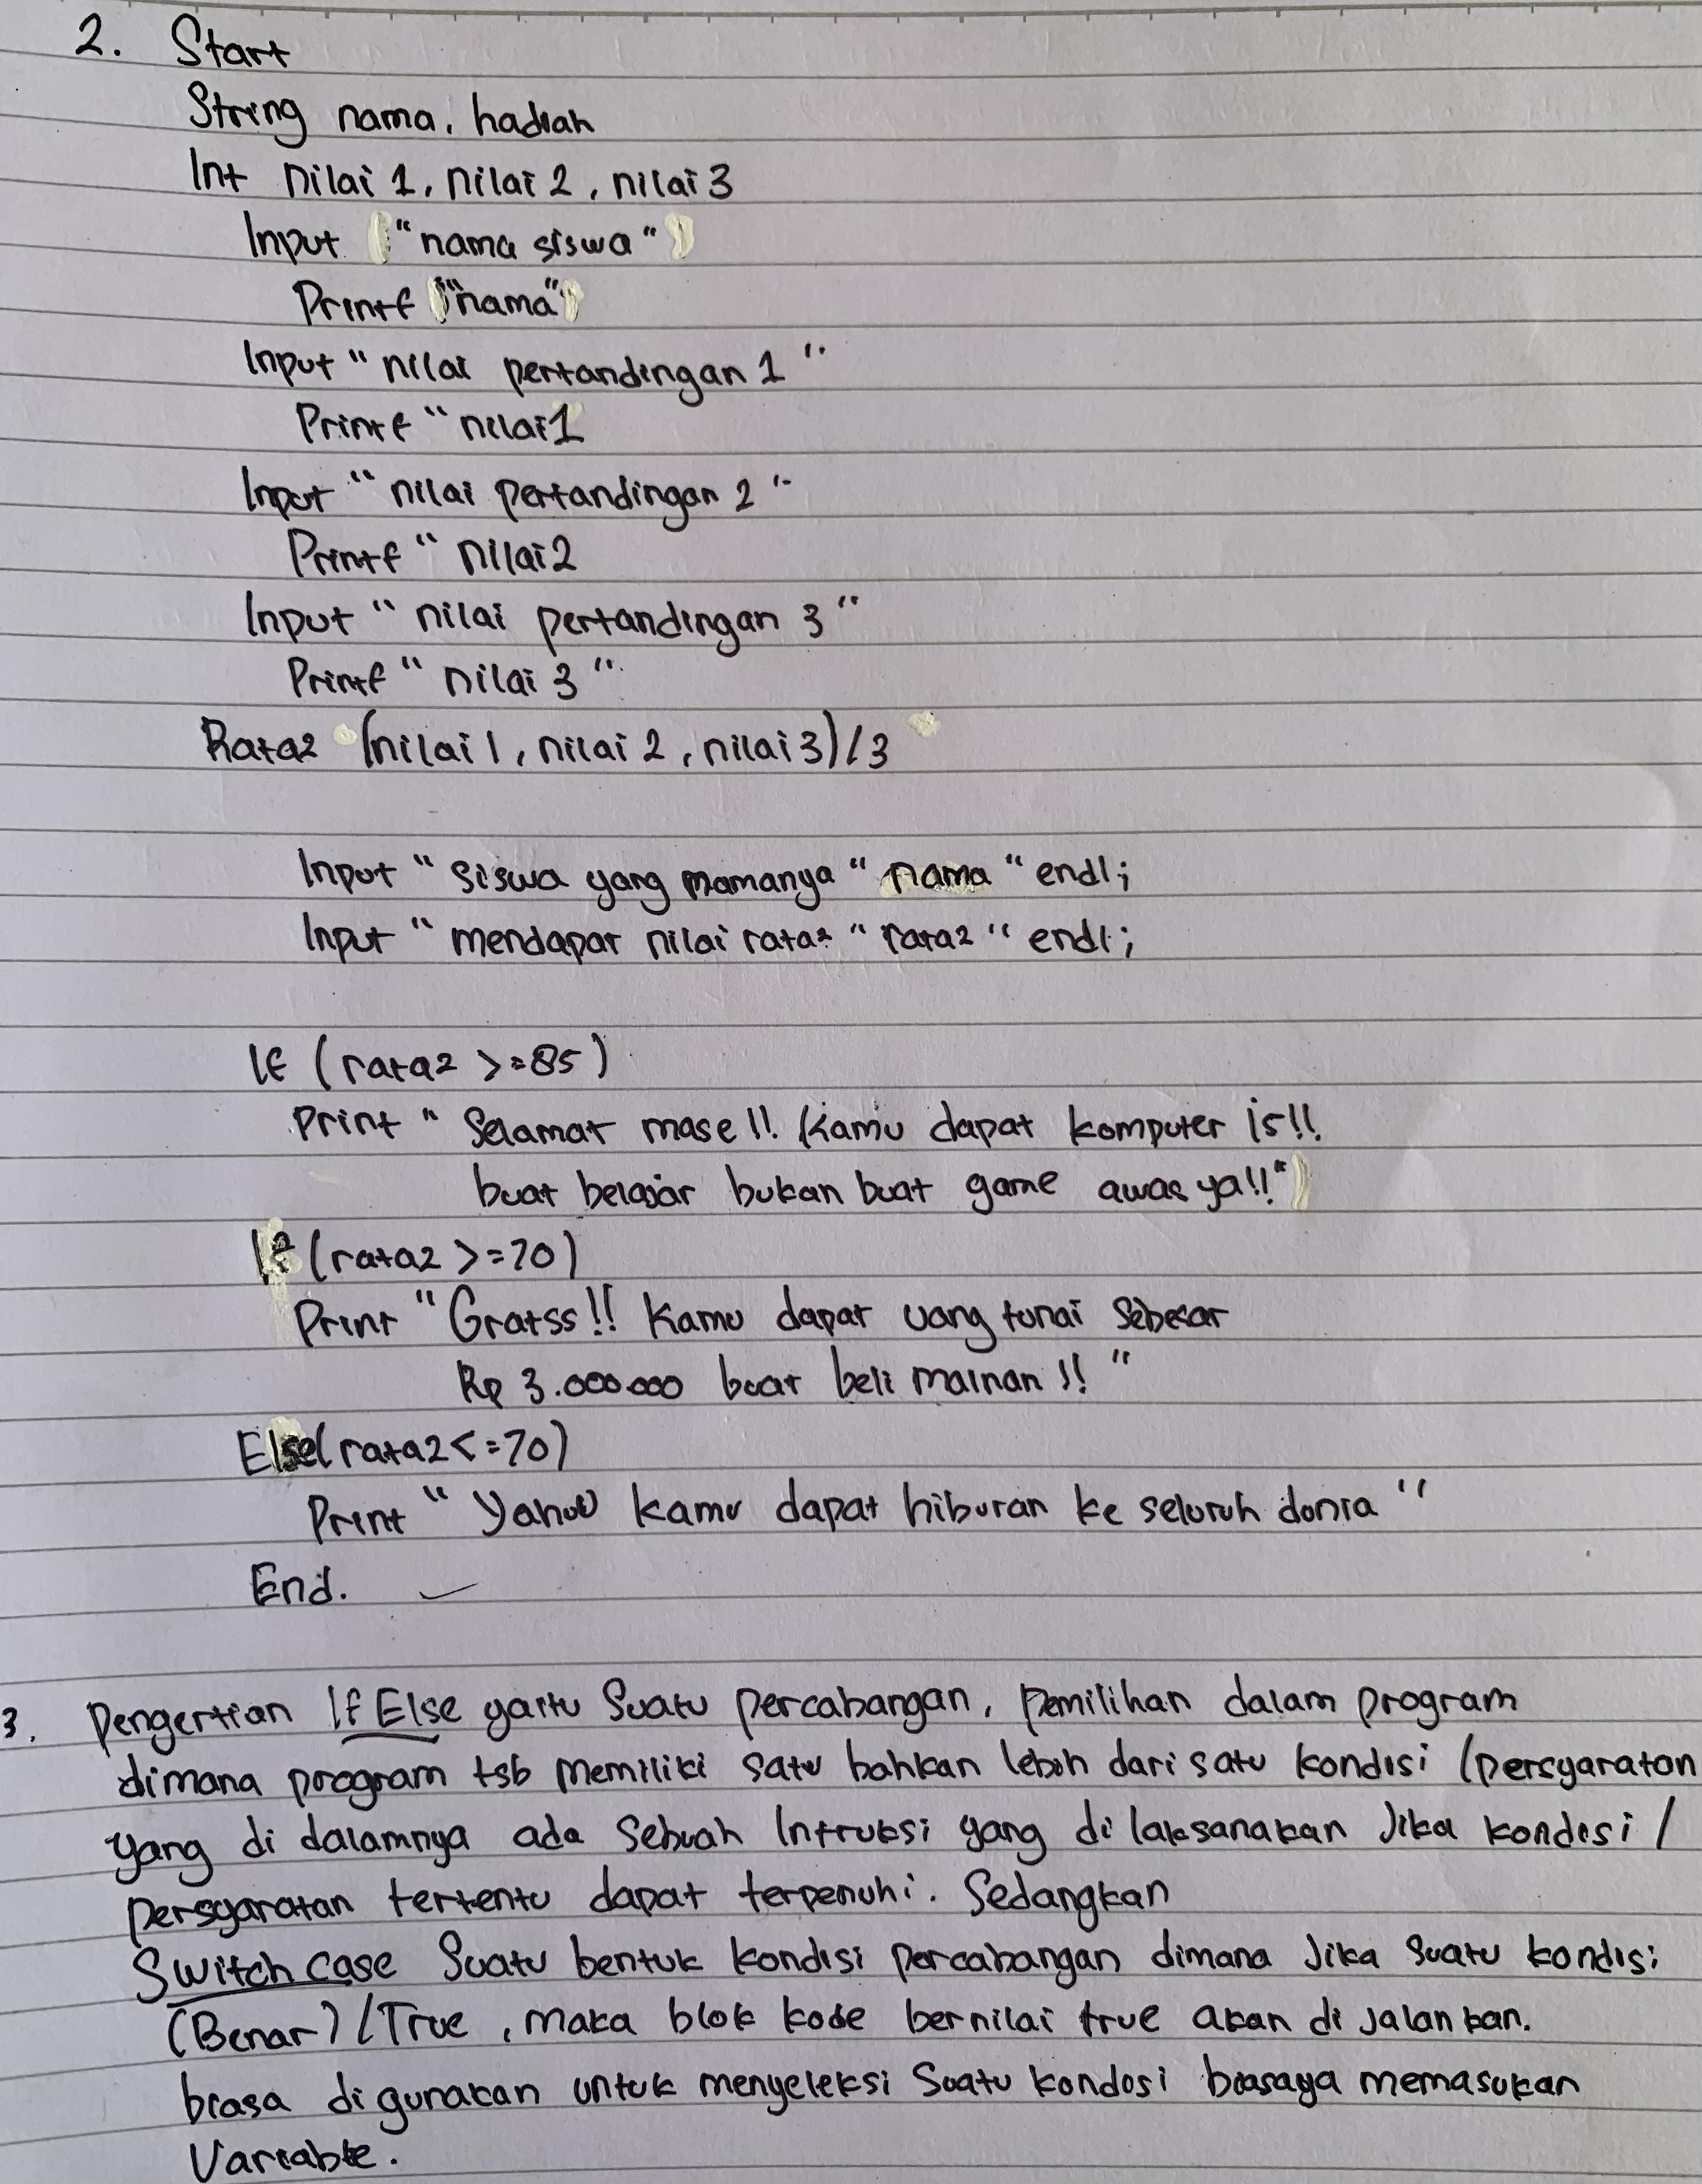 2. Start
String nama, hadiah
Int nilai 1, nilai 2, nilai 3
Input ("nama siswa")
Printf ("nama")
Input "nilai pertandingan 1"
Printf "nilai1
Input "nilai pertandingan 2"
Printf "nilai2
Input "nilai pertandingan 3"
Printf "nilai 3"
Rata2 (nilai 1, nilai 2, nilai 3)/3
Input "siswa yang mamanya" nama "endl;
Input "mendapat nilai rata2 "rata2 "endl;
If (rata2 >=85)
Print "Selamat mase!! Kamu dapat komputer i5!!
buat belajar bukan buat game awas ya!!")
If (rata2 >=70)
Print "Gratss!! Kamu dapat uang tunai sebesar
Rp 3.000.000 buat beli mainan!!"
Else(rata2<=70)
Print "Yahuu kamu dapat hiburan ke seluruh dunia"
End.
3. Pengertian If Else yaitu Suatu percabangan, pemilihan dalam program
dimana program tsb memiliki satu bahkan lebih dari satu kondisi (persyaratan
yang di dalamnya ada sebuah Intruksi yang di laksanakan Jika kondisi /
persyaratan tertentu dapat terpenuhi. Sedangkan
Switch case Suatu bentuk kondisi percabangan dimana Jika suatu kondisi
(Benar) / True, maka blok kode bernilai true akan di jalankan.
biasa digunakan untuk menyeleksi Suatu kondosi biasaya memasukan
Variable.